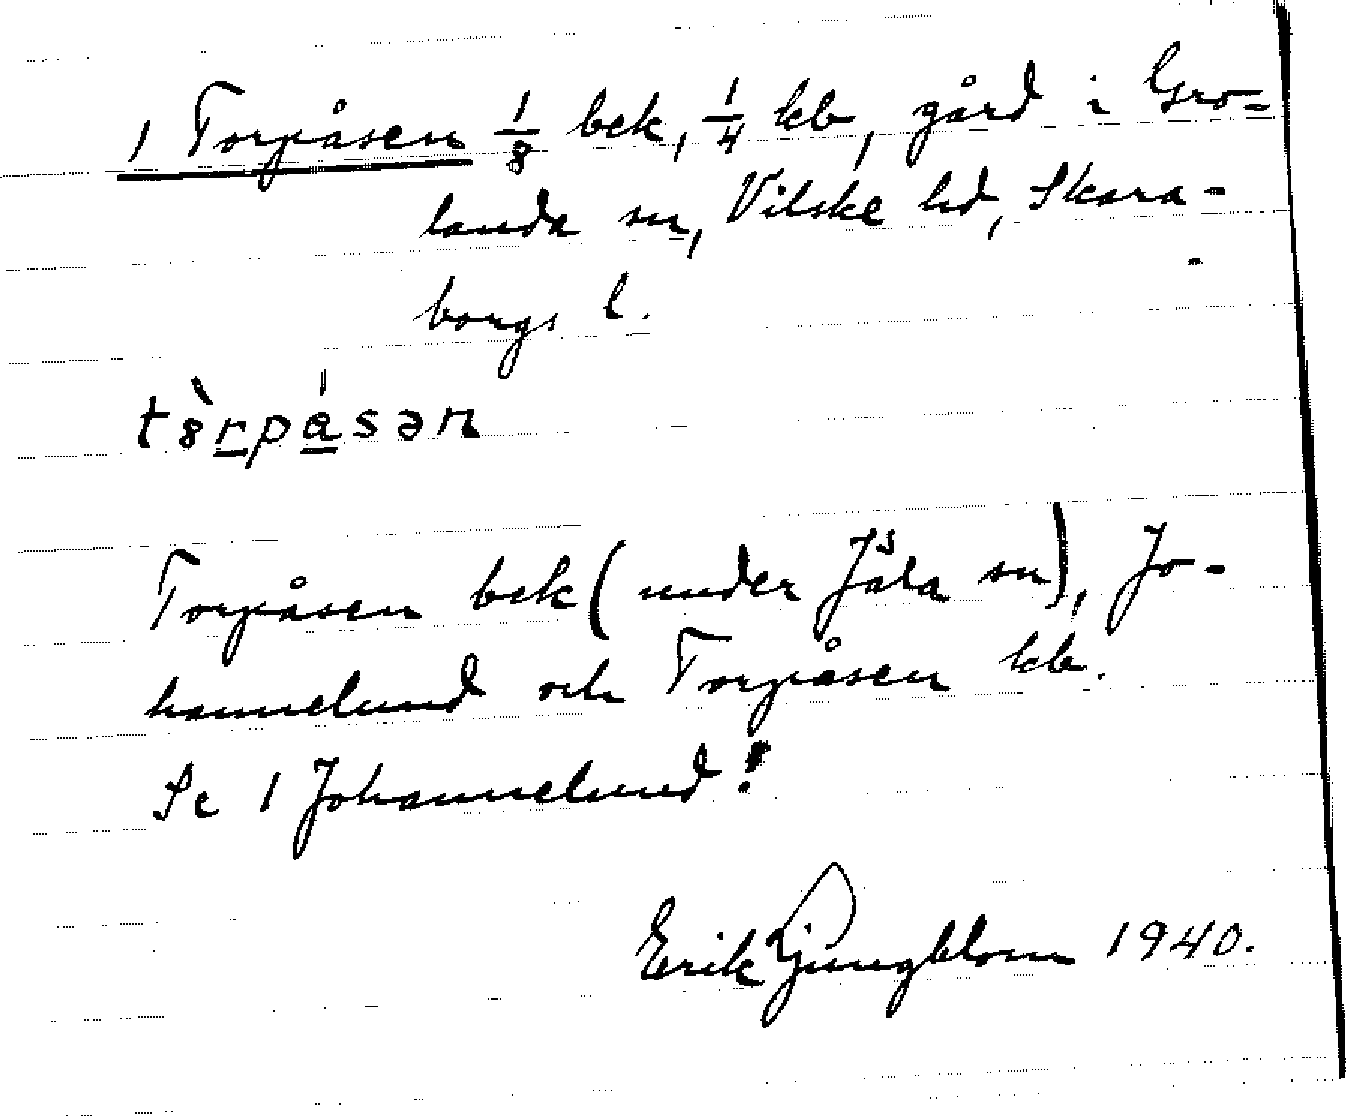 1 Torpåsen 1/8 bek, 1/4 kb, gård i Gro-
landa sn, Vilske hd, Skara-
borgs l.
tȣ̀rpásən
Torpåsen bek (under Jäla sn), Jo-
hannelund och Torpåsen kb.
Se 1 Johannelund!
Erik Ljungblom 1940.